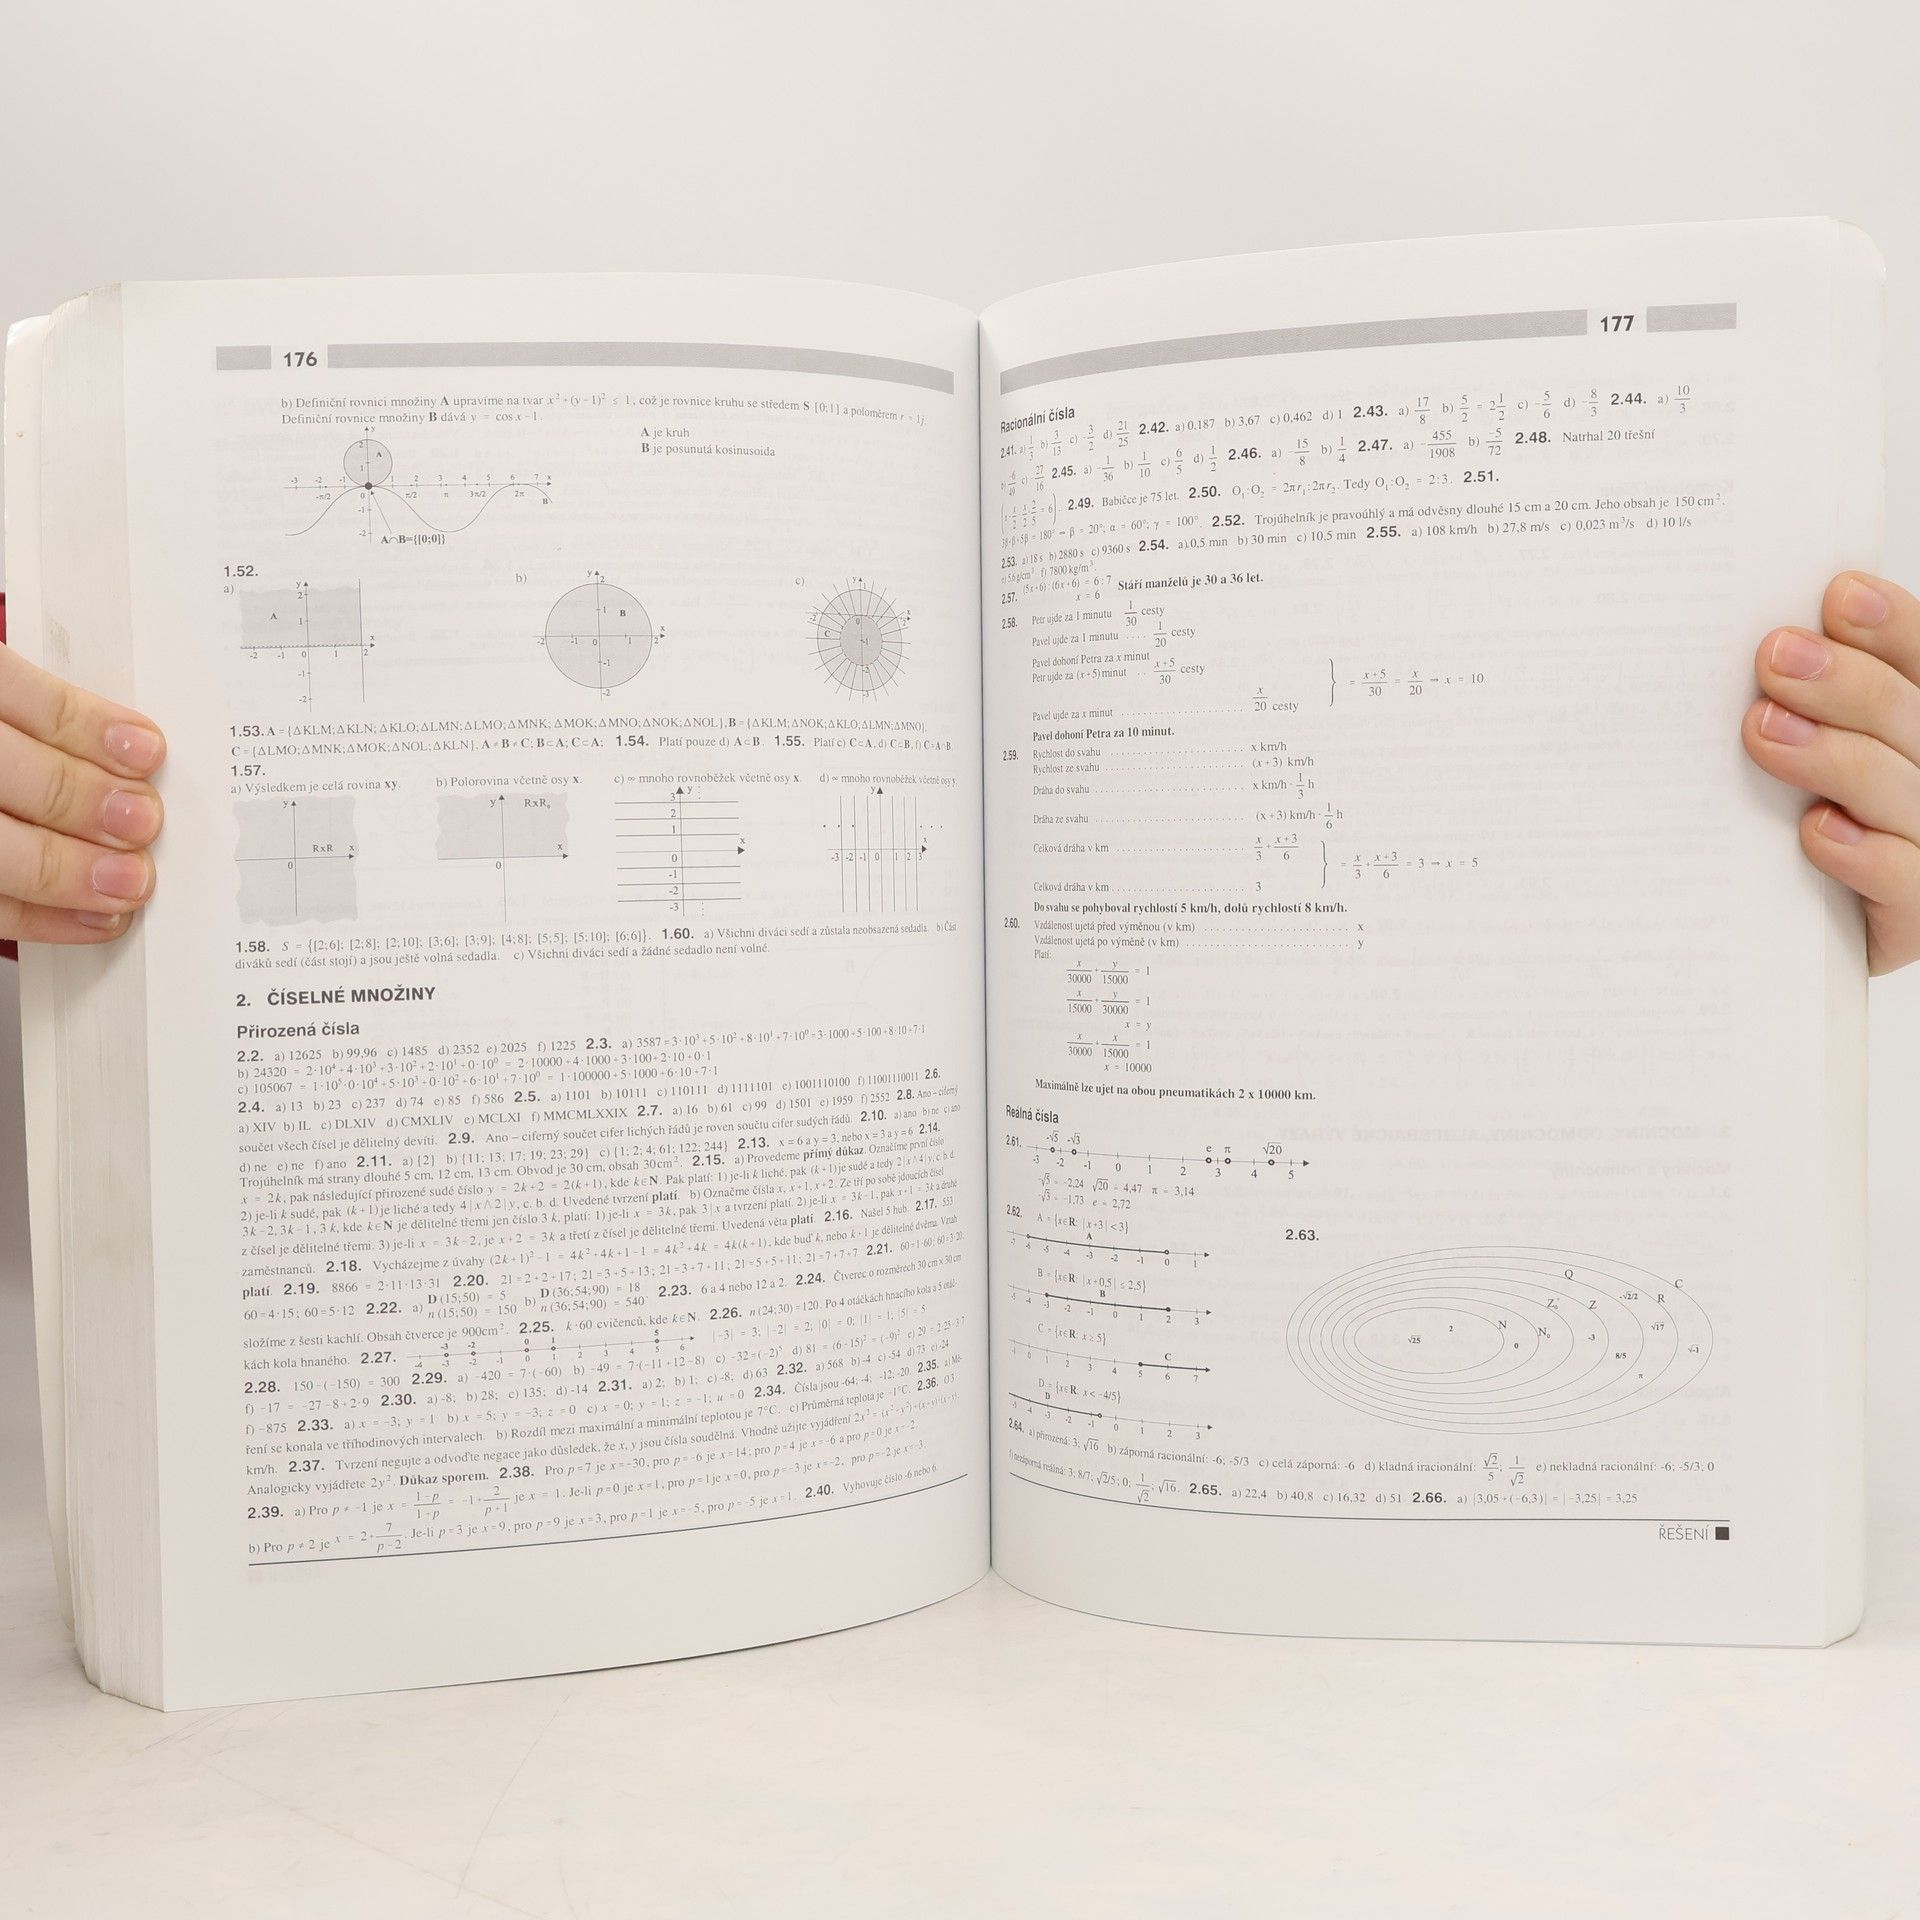 176
b) Definiční rovnici množiny A upravíme na tvar x² + (y – 1)² ≤ 1, což je rovnice kruhu se středem S [0;1] a poloměrem r = 1j.
Definiční rovnice množiny B dává y = cos x - 1.
A je kruh
B je posunutá kosinusoida
A∩B={[0;0]}
1.52.
a)
b)
c)
1.53. A = {ΔKLM; ΔKLN; ΔKLO; ΔLMN; ΔLMO; ΔMNK; ΔMOK; ΔMNO; ΔNOK; ΔNOL}, B = {ΔKLM; ΔNOK; ΔKLO; ΔLMN; ΔMNO},
C = {ΔLMO; ΔMNK; ΔMOK; ΔNOL; ΔKLN}, A ≠ B ≠ C; B⊂A; C⊂A; 1.54. Platí pouze d) A⊂B. 1.55. Platí c) C⊂A, d) C⊂B,
1.57.
a) Výsledkem je celá rovina xy. b) Polorovina včetně osy x. c) ∞ mnoho rovnoběžek včetně osy x. d) ∞ mnoho rovnoběžek včetně osy y.
RxR
RxR₀
1.58. S = {[2;6]; [2;8]; [2;10]; [3;6]; [3;9]; [4;8]; [5;5]; [5;10]; [6;6]}. 1.60. a) Všichni diváci sedí a zůstala neobsazená sedadla. b) Část
diváků sedí (část stojí) a jsou ještě volná sedadla. c) Všichni diváci sedí a žádné sedadlo není volné.
2. ČÍSELNÉ MNOŽINY
Přirozená čísla
2.2. a) 12625 b) 99,96 c) 1485 d) 2352 e) 2025 f) 1225 2.3. a) 3587 = 3·10³+5·10²+8·10¹+7·10⁰ = 3·1000+5·100+8·10+7·1
b) 24320 = 2·10⁴+4·10³+3·10²+2·10¹+0·10⁰ = 2·10000+4·1000+3·100+2·10+0·1
c) 105067 = 1·10⁵+0·10⁴+5·10³+0·10²+6·10¹+7·10⁰ = 1·100000+5·1000+6·10+7·1
2.4. a) 13 b) 23 c) 237 d) 74 e) 85 f) 586 2.5. a) 1101 b) 10111 c) 110111 d) 1111101 e) 1001110100 f) 11001110011 2.6.
a) XIV b) IL c) DLXIV d) CMXLIV e) MCLXI f) MMCMLXXIX 2.7. a) 16 b) 61 c) 99 d) 1501 e) 1959 f) 2552 2.8. Ano – ciferný
součet všech čísel je dělitelný devíti. 2.9. Ano – ciferný součet cifer lichých řádů je roven součtu cifer sudých řádů. 2.10. a) ano b) ne c) ano
d) ne e) ne f) ano 2.11. a) {2} b) {11; 13; 17; 19; 23; 29} c) {1; 2; 4; 61; 122; 244} 2.13. x = 6 a y = 3, nebo x = 3 a y = 6 2.14.
Trojúhelník má strany dlouhé 5 cm, 12 cm, 13 cm. Obvod je 30 cm, obsah 30cm². 2.15. a) Provedeme přímý důkaz. Označíme první číslo
x = 2k, pak následující přirozené sudé číslo y = 2k+2 = 2(k+1), kde k∈N. Pak platí: 1) je-li k liché, pak (k+1) je sudé a tedy 2|x∧4|y, c. b. d.
2) je-li k sudé, pak (k+1) je liché a tedy 4|x∧2|y, c. b. d. Uvedené tvrzení platí. b) Označme čísla x, x+1, x+2. Ze tří po sobě jdoucích čísel
3k-2, 3k-1, 3k, kde k∈N je dělitelné třemi jen číslo 3k, platí: 1) je-li x = 3k, pak 3|x a tvrzení platí. 2) je-li x = 3k-1, pak x+1 = 3k a druhé
z čísel je dělitelné třemi. 3) je-li x = 3k-2, je x+2 = 3k a třetí z čísel je dělitelné třemi. Uvedená věta platí. 2.16. Našel 5 hub. 2.17. 553
zaměstnanců. 2.18. Vycházejme z úvahy (2k+1)²-1 = 4k²+4k+1-1 = 4k²+4k = 4k(k+1), kde buď k, nebo k+1 je dělitelné dvěma. Vztah
platí. 2.19. 8866 = 2·11·13·31 2.20. 21=2+2+17; 21=3+5+13; 21=3+7+11; 21=5+5+11; 21=7+7+7 2.21. 60=1·60; 60=3·20;
60=4·15; 60=5·12 2.22. a) D(15;50) = 5 n(15;50) = 150 b) D(36;54;90) = 18 n(36;54;90) = 540 2.23. 6 a 4 nebo 12 a 2. 2.24. Čtverec o rozměrech 30 cm x 30 cm
složíme z šesti kachlí. Obsah čtverce je 900cm². 2.25. k·60 cvičenců, kde k∈N. 2.26. n(24;30)=120. Po 4 otáčkách hnacího kola a 5 otáč-
kách kola hnaného. 2.27. |-3| = 3; |-2| = 2; |0| = 0; |1| = 1; |5| = 5
2.28. 150-(-150) = 300 2.29. a) -420 = 7·(-60) b) -49 = 7·(-11+12-8) c) -32=(-2)⁵ d) 81 = (6-15)² = (-9)² e) 29 = 2·25-3·7
f) -17 = -27-8+2·9 2.30. a) -8; b) 28; c) 135; d) -14 2.31. a) 2; b) 1; c) -8; d) 63 2.32. a) 568 b) -4 c) -54 d) 73 e) -24
f) -875 2.33. a) x = -3; y = 1 b) x = 5; y = -3; z = 0 c) x = 0; y = 1; z = -1; u = 0 2.34. Čísla jsou -64; -4; -12; -20 2.35. a) Mě-
ření se konala ve tříhodinových intervalech. b) Rozdíl mezi maximální a minimální teplotou je 7°C. c) Průměrná teplota je -1°C. 2.36. 03
km/h. 2.37. Tvrzení negujte a odvoďte negace jako důsledek, že x, y jsou čísla soudělná. Vhodně užijte vyjádření 2x² = (x²+y²)+(x+y)·(x-y).
Analogicky vyjádřete 2y². Důkaz sporem. 2.38. Pro p=7 je x=-30, pro p=-6 je x=14; pro p=4 je x=-6 a pro p=0 je x=-2.
2.39. a) Pro p ≠ -1 je x = (1-p)/(1+p) = -1+2/(p+1) je x = 1. Je-li p=0 je x=1, pro p=1 je x=0, pro p=-3 je x=-2, pro p=-2 je x=-3.
b) Pro p ≠ 2 je x = 2+7/(p-2). Je-li p=3 je x=9, pro p=9 je x=3, pro p=1 je x=-5, pro p=-5 je x=1. 2.40. Vyhovuje číslo -6 nebo 6.
177
Racionální čísla
2.41. a) 1/3 b) 3/13 c) -3/2 d) 21/25 2.42. a) 0,187 b) 3,67 c) 0,462 d) 1 2.43. a) 17/8 b) 5/2 = 2 1/2 c) -5/6 d) -8/3 2.44. a) 10/3
b) -6/49 c) 27/16 2.45. a) -1/36 b) 1/10 c) 6/5 d) 1/2 2.46. a) -15/8 b) 1/4 2.47. a) -455/1908 b) -5/72 2.48. Natrhal 20 třešní
2.49. Babičce je 75 let. 2.50. O₁:O₂ = 2πr₁:2πr₂. Tedy O₁:O₂ = 2:3. 2.51.
3β+β+5β = 180° → β = 20°; α = 60°; γ = 100°. 2.52. Trojúhelník je pravoúhlý a má odvěsny dlouhé 15 cm a 20 cm. Jeho obsah je 150 cm².
2.53. a) 18 s b) 2880 s c) 9360 s 2.54. a) 0,5 min b) 30 min c) 10,5 min 2.55. a) 108 km/h b) 27,8 m/s c) 0,023 m³/s d) 10 l/s
e) 5,6 g/cm³ f) 7800 kg/m³.
2.57. (5x+6):(6x+6) = 6:7 Stáří manželů je 30 a 36 let.
x = 6
2.58. Petr ujde za 1 minutu 1/30 cesty
Pavel ujde za 1 minutu .... 1/20 cesty
Pavel dohoní Petra za x minut
Petr ujde za (x+5) minut .. (x+5)/30 cesty
= (x+5)/30 = x/20 → x = 10
Pavel ujde za x minut ........ x/20 cesty
Pavel dohoní Petra za 10 minut.
2.59. Rychlost do svahu ........ x km/h
Rychlost ze svahu ........ (x+3) km/h
Dráha do svahu ........ x km/h · 1/3 h
Dráha ze svahu ........ (x+3) km/h · 1/6 h
Celková dráha v km ........ x/3 + (x+3)/6
= x/3 + (x+3)/6 = 3 → x = 5
Celková dráha v km ........ 3
Do svahu se pohyboval rychlostí 5 km/h, dolů rychlostí 8 km/h.
2.60. Vzdálenost ujetá před výměnou (v km) ........ x
Vzdálenost ujetá po výměně (v km) ........ y
Platí:
x/30000 + y/15000 = 1
x/15000 + y/30000 = 1
x = y
x/30000 + x/15000 = 1
x = 10000
Maximálně lze ujet na obou pneumatikách 2 x 10000 km.
Reálná čísla
2.61. -√5 -√3 e π √20
-3 -2 -1 0 1 2 3 4 5
-√5 = -2,24 √20 = 4,47 π = 3,14
-√3 = -1,73 e = 2,72
2.62. A = {x∈R: |x+3| < 3}
B = {x∈R: |x+0,5| ≤ 2,5}
C = {x∈R: x ≥ 5}
D = {x∈R: x < -4/5}
2.63.
√25 2 N 0 N₀ Z₀⁻ -3 Z Q 8/5 -√2/2 √17 π R √-1 C
2.64. a) přirozená: 3; √16 b) záporná racionální: -6; -5/3 c) celá záporná: -6 d) kladná iracionální: √2/5; 1/√2 e) nekladná racionální: -6; -5/3; 0
f) nezáporná reálná: 3; 8/7; √2/5; 0; 1/√2; √16. 2.65. a) 22,4 b) 40,8 c) 16,32 d) 51 2.66. a) |3,05+(-6,3)| = |-3,25| = 3,25
ŘEŠENÍ